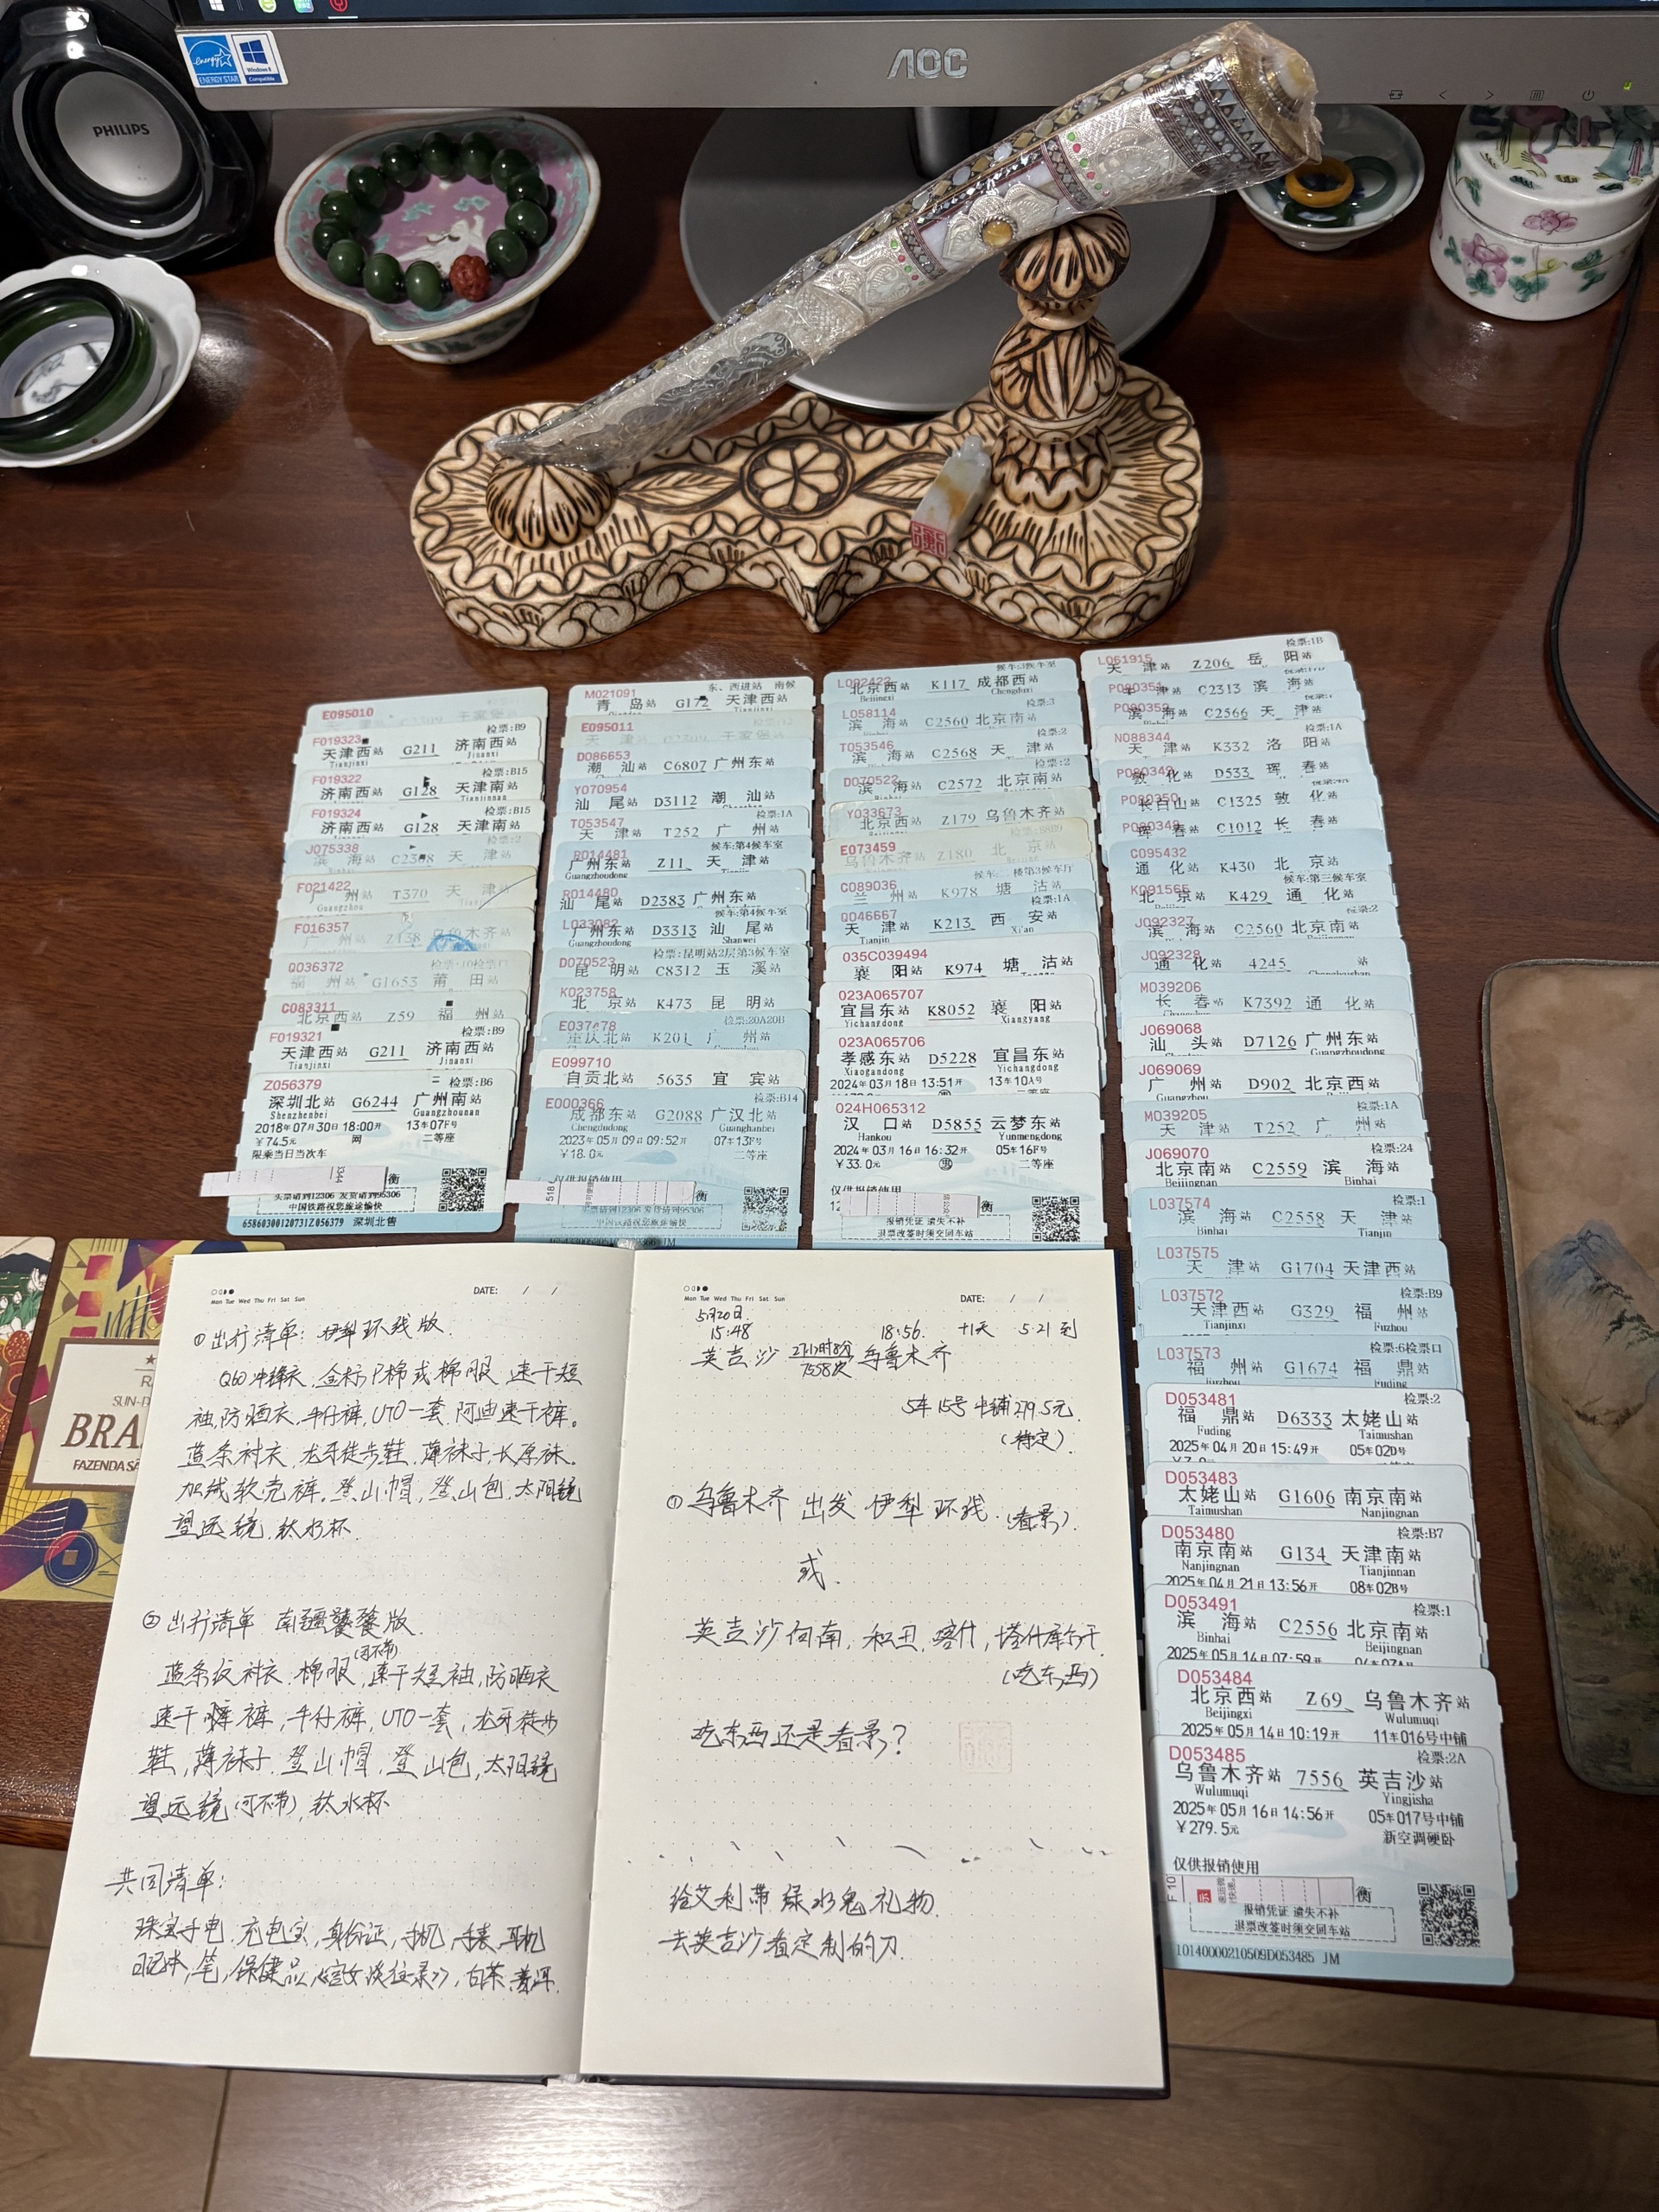 ENERGY STAR
Windows 8
Compatible
AOC
PHILIPS
E095010
F019323
检票:B9
天津西站 G211 济南西站
Tianjinxi Jinanxi
F019322
检票:B15
济南西站 G128 天津南站
Jinanxi Tianjinnan
F019324
检票:B15
济南西站 G128 天津南站
J075338
滨海站 天津站
F021422
广州站 T370 天津站
Guangzhou
F016357
广州站 Z138 乌鲁木齐站
Q036372
福州站 G1653 莆田站
C083311
北京西站 Z59 福州站
F019321
检票:B9
天津西站 G211 济南西站
Tianjinxi Jinanxi
Z056379
检票:B6
深圳北站 G6244 广州南站
Shenzhenbei Guangzhounan
2018年07月30日18:00开 13车07F号
¥74.5元 网 二等座
限乘当日当次车
买票请到12306 发货请到95306
中国铁路祝您旅途愉快
65860300120731Z056379 深圳北售
M021091
东、西进站 南候
青岛站 G172 天津西站
E095011
D086653
潮汕站 C6807 广州东站
Y070954
汕尾站 D3112 潮汕站
T053547
检票:1A
天津站 T252 广州站
R014481
候车:第4候车室
广州东站 Z11 天津站
Guangzhoudong
R014480
汕尾站 D2383 广州东站
L033082
候车:第4候车室
广州东站 D3313 汕尾站
Guangzhoudong Shanwei
D070523
检票:昆明站2层第3候车室
昆明站 C8312 玉溪站
K023758
北京站 K473 昆明站
E037478
检票:20A20B
重庆北站 K201 广州站
E099710
自贡北站 5635 宜宾站
E000366
检票:B14
成都东站 G2088 广汉北站
Chengdudong Guanghanbei
2023年05月09日09:52开 07车13F号
¥18.0元 二等座
仅供报销使用
衡
买票请到12306 发货请到95306
中国铁路祝您旅途愉快
L092422
北京西站 K117 成都西站
Beijingxi Chengduxi
L058114
检票:3
滨海站 C2560 北京南站
T053546
检票:2
滨海站 C2568 天津站
D070522
检票:2
滨海站 C2572 北京南站
Y033673
北京西站 Z179 乌鲁木齐站
E073459
乌鲁木齐站 Z180 北京站
C089036
兰州站 K978 塘沽站
Q046667
检票:1A
天津站 K213 西安站
Tianjin Xi'an
035C039494
襄阳站 K974 塘沽站
023A065707
宜昌东站 K8052 襄阳站
Yichangdong Xiangyang
023A065706
孝感东站 D5228 宜昌东站
Xiaogandong Yichangdong
2024年03月18日13:51开 13车10A号
024H065312
汉口站 D5855 云梦东站
Hankou Yunmengdong
2024年03月16日16:32开 05车16F号
¥33.0元 二等座
仅供报销使用
衡
报销凭证 遗失不补
退票改签时须交回车站
检票:1B
L061915
天津站 Z206 岳阳站
P090351
天津站 C2313 滨海站
P090352
滨海站 C2566 天津站
N088344
检票:1A
天津站 K332 洛阳站
P090349
敦化站 D533 珲春站
P090350
长白山站 C1325 敦化站
P090348
珲春站 C1012 长春站
C095432
通化站 K430 北京站
K091565
候车:第三候车室
北京站 K429 通化站
J092327
检票:2
滨海站 C2560 北京南站
J092328
通化站 4245 站
M039206
长春站 K7392 通化站
J069068
汕头站 D7126 广州东站
Guangzhoudong
J069069
广州站 D902 北京西站
M039205
检票:1A
天津站 T252 广州站
J069070
检票:24
北京南站 C2559 滨海站
Beijingnan Binhai
L037574
检票:1
滨海站 C2558 天津站
Binhai Tianjin
L037575
天津站 G1704 天津西站
L037572
检票:B9
天津西站 G329 福州站
Tianjinxi Fuzhou
L037573
检票:6检票口
福州站 G1674 福鼎站
Fuzhou Fuding
D053481
检票:2
福鼎站 D6333 太姥山站
Fuding Taimushan
2025年04月20日15:49开 05车02D号
D053483
太姥山站 G1606 南京南站
Taimushan Nanjingnan
D053480
检票:B7
南京南站 G134 天津南站
Nanjingnan Tianjinnan
2025年04月21日13:56开 08车02B号
D053491
检票:1
滨海站 C2556 北京南站
Binhai Beijingnan
2025年05月14日07:59开
D053484
北京西站 Z69 乌鲁木齐站
Beijingxi Wulumuqi
2025年05月14日10:19开 11车016号中铺
D053485
检票:2A
乌鲁木齐站 7556 英吉沙站
Wulumuqi Yingjisha
2025年05月16日14:56开 05车017号中铺
¥279.5元 新空调硬卧
仅供报销使用
衡
报销凭证 遗失不补
退票改签时须交回车站
10140000210509D053485 JM
BRA
FAZENDA
Mon Tue Wed Thu Fri Sat Sun DATE: / /
①出行清单:伊犁环线版.
Q60冲锋衣.金标P棉或棉服.速干短
袖,防晒衣.牛仔裤.UTO一套.阿迪速干裤。
蓝条衬衣.龙牙徒步鞋,薄袜子,长厚袜。
加绒软壳裤。登山帽,登山包,太阳镜
望远镜.钛水杯.
②出行清单 南疆饕餮版.
蓝条纹衬衣.棉服(可不带),速干短袖,防晒衣
速干裤,牛仔裤,UTO一套,龙牙徒步
鞋,薄袜子.登山帽,登山包,太阳镜
望远镜(可不带),钛水杯
共同清单:
珠宝手电.充电宝,身份证,手机,手表,耳机
日记本,笔,保健品,《宫女谈往录》,白茶,普洱.
Mon Tue Wed Thu Fri Sat Sun DATE: / /
5月20日.
15:48 18:56. +1天 5.21到
英吉沙 27小时8分 乌鲁木齐
7558次
5车15号中铺279.5元.
(待定).
①乌鲁木齐 出发 伊犁 环线.(看景).
或.
英吉沙向南,和田,喀什,塔什库尔干
(吃东西)
吃东西还是看景?
给艾利带绿水鬼礼物.
去英吉沙看定制的刀.